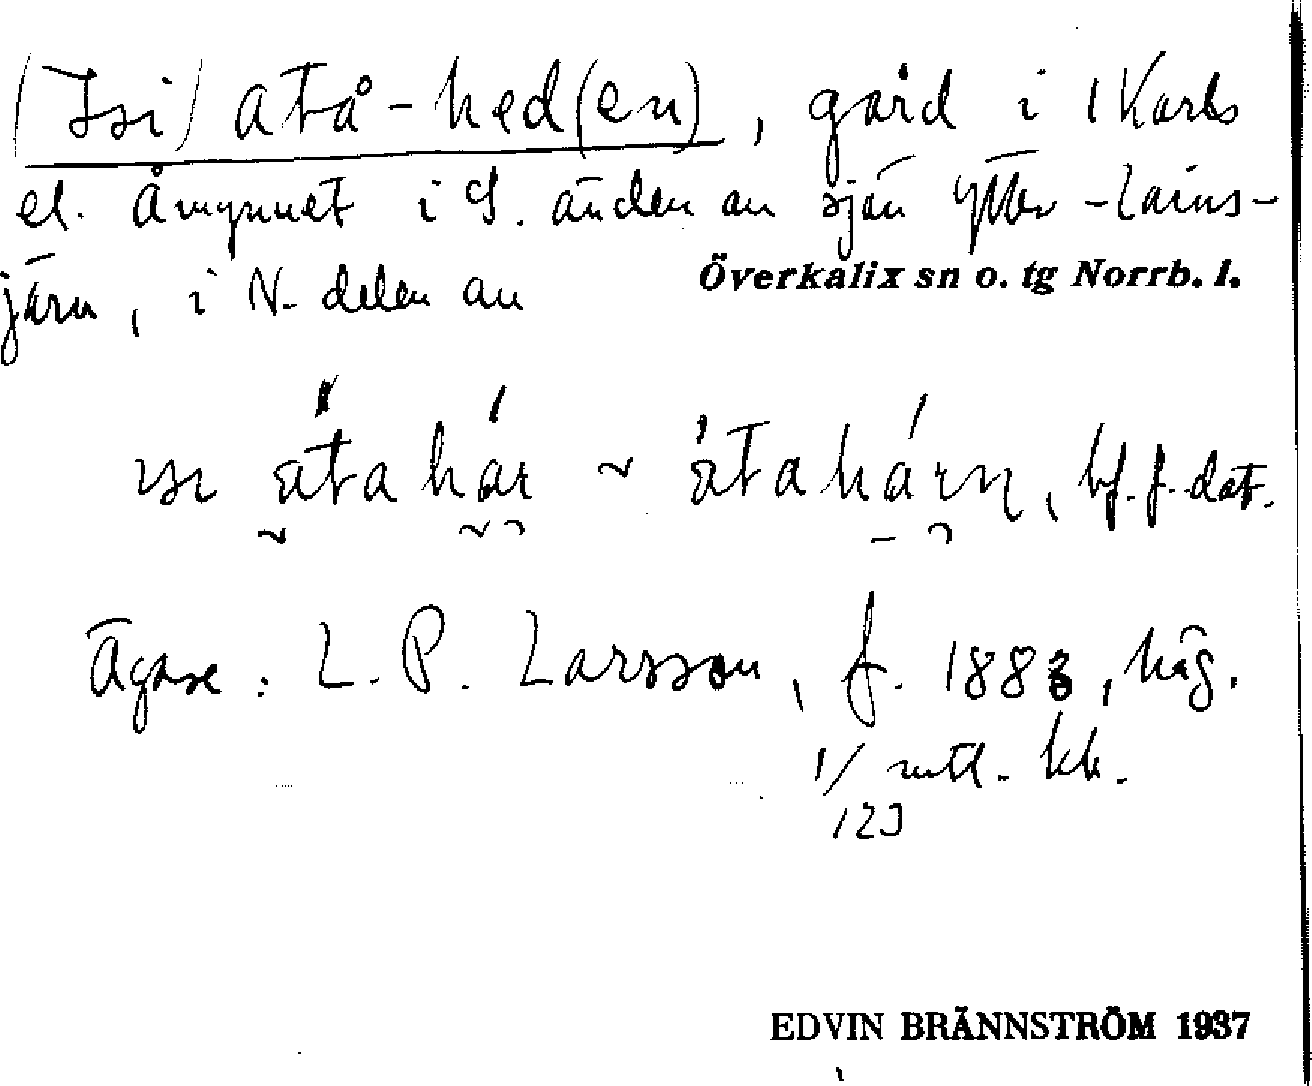 (Isi) atå-hed(en), gård i 1 Karls
el. Åmynnet i S. änden av sjön Ytter-Lains-
järv, i N. delen av
Överkalix sn o. tg Norrb. l.
åtahár ~ åtahárn, bf. f. dat.
Ägare: L. P. Larsson, f. 1883,
1/ mtl. kb.
123
EDVIN BRÄNNSTRÖM 1937